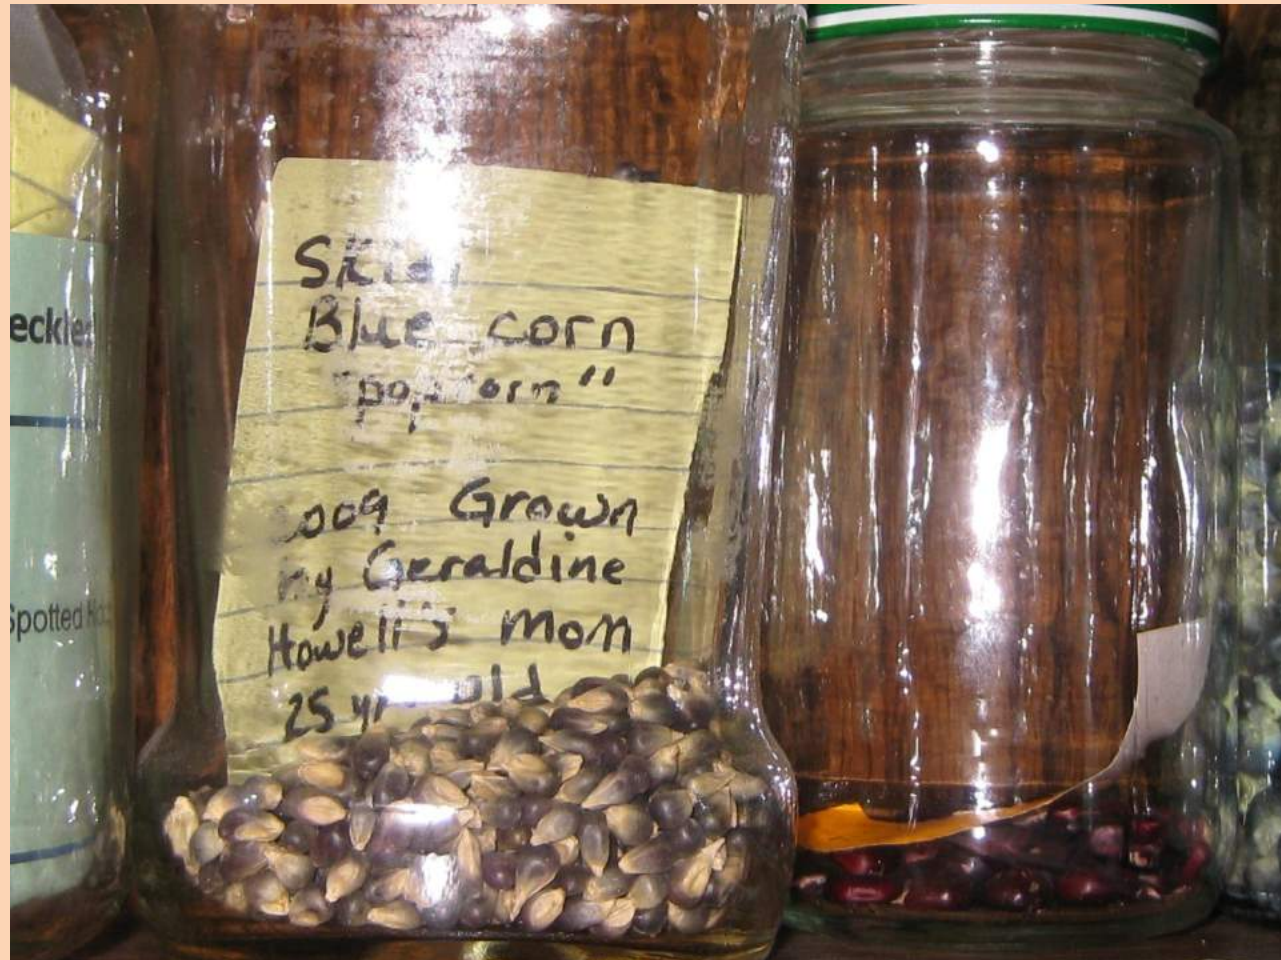 eckled
Spotted
Blue corn
"popcorn"
Grown
by Geraldine
Howell's Mom
25 yr old